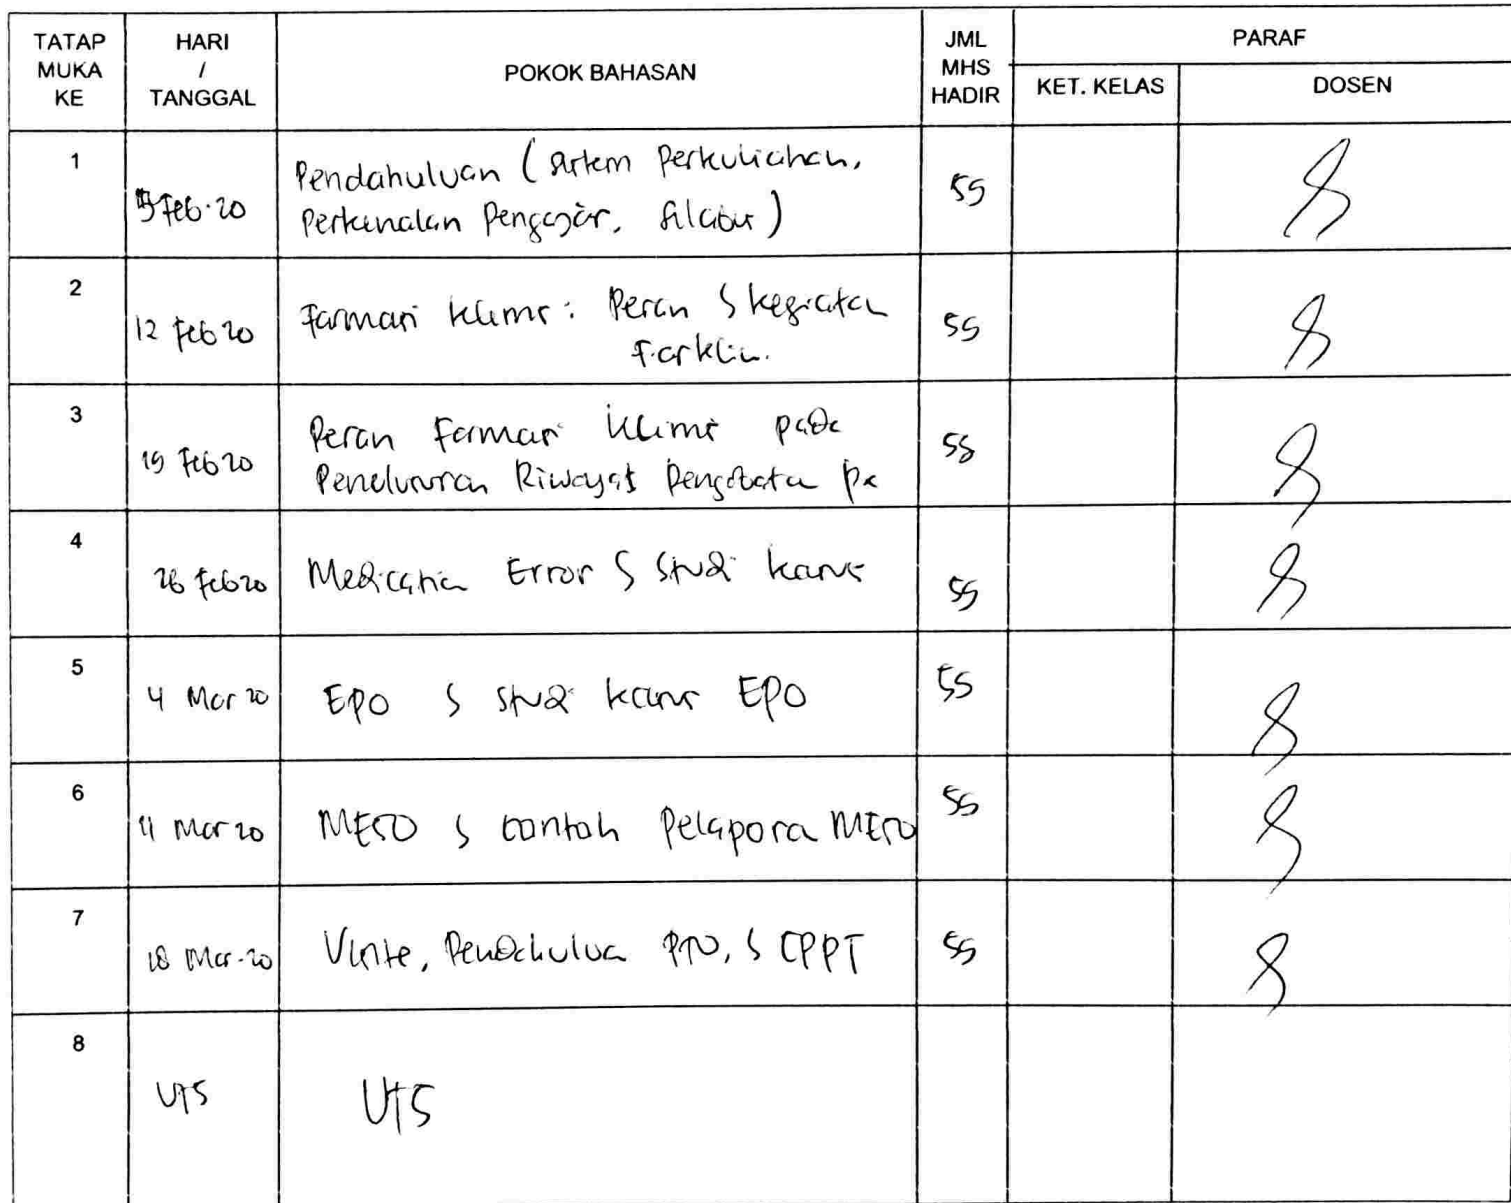 TATAP MUKA KE
HARI / TANGGAL
POKOK BAHASAN
JML MHS HADIR
PARAF
KET. KELAS
DOSEN
1
5 Feb.20
Pendahuluan (sistem Perkuliahan,
Perkenalan Pengajar, Silabus)
55
2
12 Feb 20
Farmasi klinis : Peran & kegiatan
Farklin.
55
3
19 Feb 20
Peran Farmasi klinis pada
Penelusuran Riwayat Pengobatan px
55
4
26 Feb 20
Medication Error & studi kasus
55
5
4 Mar 20
EPO & studi kasus EPO
55
6
11 Mar 20
MESO & contoh Pelaporan MESO
55
7
18 Mar-20
Visite, Pendahuluan PTO, & CPPT
55
8
UTS
UTS